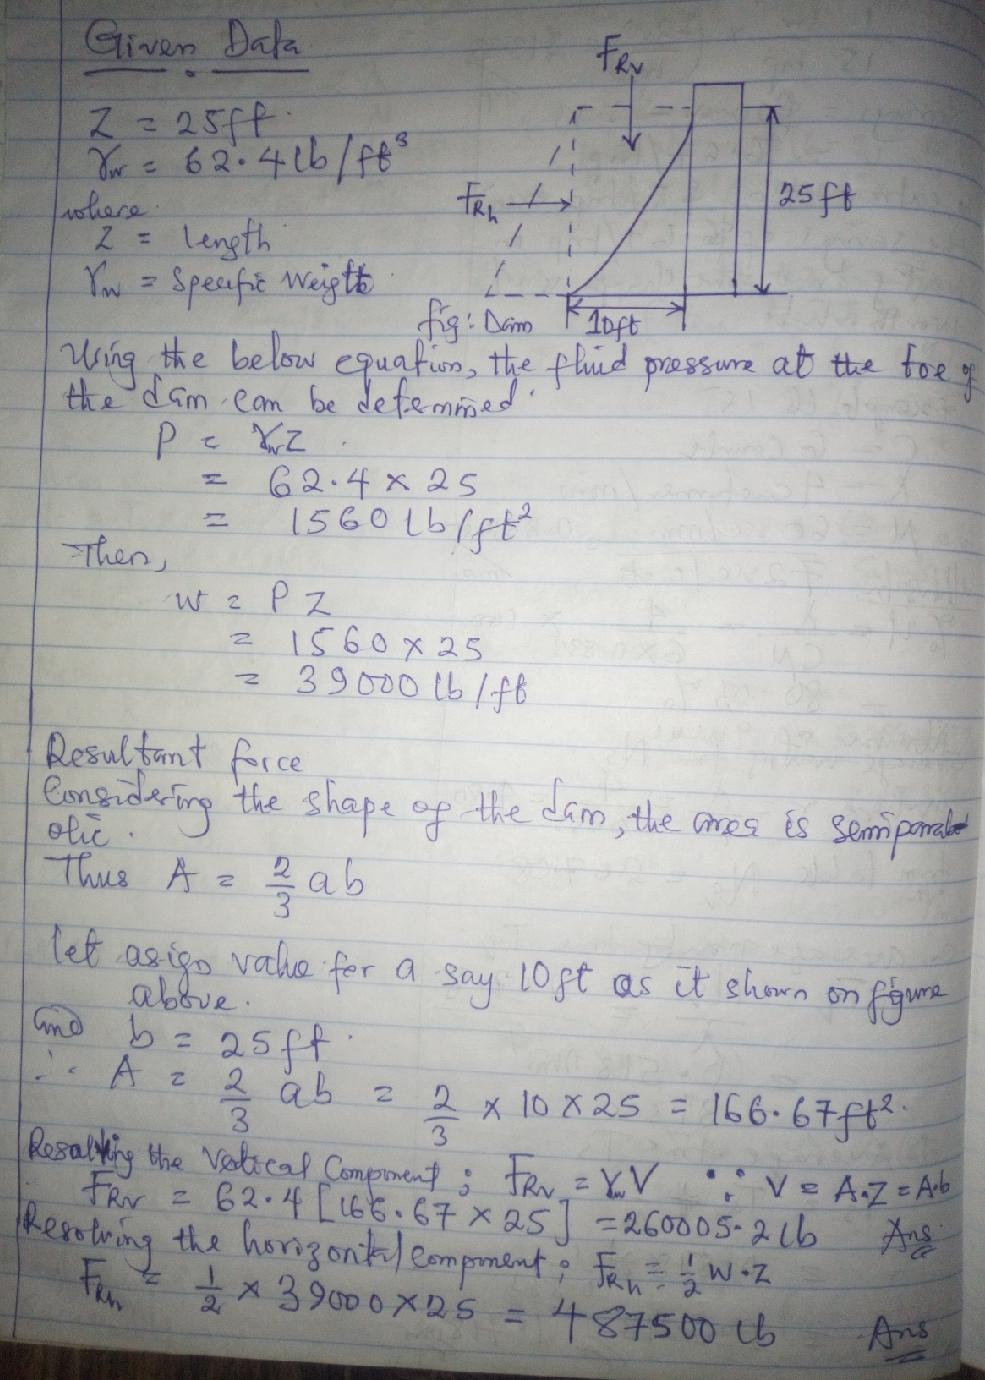 Given Data.
Z = 25ft.
γw = 62.4 lb/ft³
where.
Z = length
γw = Specific Weigtt.
FRv
FRh
25ft
10ft
fig: Dam
Using the below equation, the fluid pressure at the toe of
the dam can be determined.
P = γwZ.
= 62.4 x 25
= 1560 lb/ft²
Then,
W = PZ
= 1560 x 25
= 39000 lb/ft
Resultant force
Considering the shape of the dam, the area is semiparab
olic.
Thus A = 2/3 ab
let asign value for a say 10ft as it shown on figure
above.
and b = 25ft.
∴ A = 2/3 ab = 2/3 x 10 x 25 = 166.67ft².
Resolving the Vertical Component; FRv = γwV ∵ V = A.Z = A.b
FRv = 62.4 [166.67 x 25] = 260005.2 lb Ans.
Resolving the horizontal component; FRh = 1/2 W.Z
FRh = 1/2 x 39000 x 25 = 487500 lb Ans